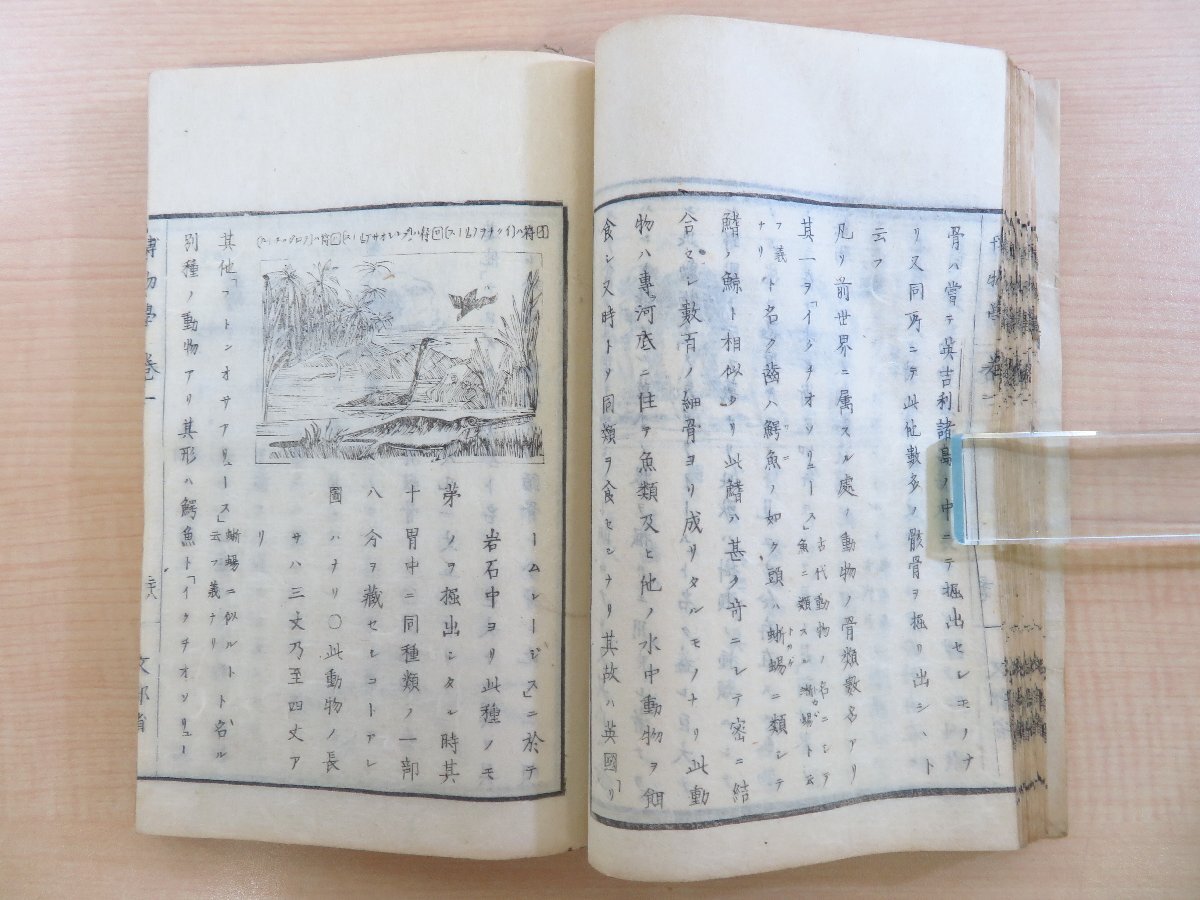 骨ハ嘗テ英吉利諸島ノ中ニテ掘出セシモノナ
リ又同所ニテ此他數多ノ骸骨ヲ掘リ出シヽト
云フ
凡ソ前世界ニ属スル處ノ動物ノ骨類數多アリ
其一ヲ「イシチオソリュース」古代動物ノ名ニシテ魚ニ類スル蜥蜴ト云
フ義ナリト名ク齒ハ鰐魚ノ如ク頭ハ蜥蜴ニ類シテ
鰭ハ鯨ト相似タリ此鰭ハ甚タ奇ニシテ密ニ結
合セシ數百ノ細骨ヨリ成リタルモノナリ此動
物ハ專ラ河底ニ住ヲ魚類及ヒ他ノ水中動物ヲ餌
食シ又時トシテ同類ヲ食セシナリ其故ハ英國「リ
ームレージス」ニ於テ
岩石中ヨリ此種ノモ
ノヲ掘出シタル時其
胃中ニ同種類ノ一部
分ヲ藏セシコトアレ
ハナリ〇此動物ノ長
サハ三丈乃至四丈ア
リ
第
十
八
圖
其他「フトンオサアリュース」蜥蜴ニ似ルト云フ義ナリト名ル
別種ノ動物アリ其形ハ鰐魚ト「イクチオソリュー
博物學 卷一
文部省